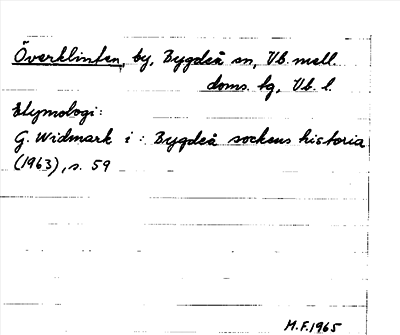 Överklinten, by, Bygdeå sn, Vb. mell.
doms. lg, Vb. l.
Etymologi:
G. Widmark i: Bygdeå sockens historia
(1963), s. 59
M.F. 1965